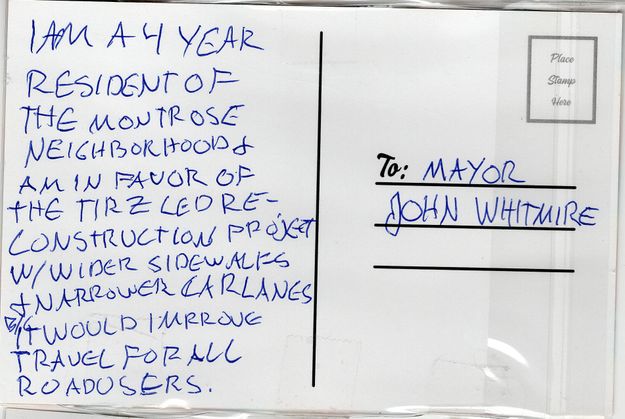 I AM A 4 YEAR
RESIDENT OF
THE MONTROSE
NEIGHBORHOOD &
AM IN FAVOR OF
THE TIRZ LED RE-
CONSTRUCTION PROJECT
W/ WIDER SIDEWALKS
& NARROWER CAR LANES
B/C IT WOULD IMPROVE
TRAVEL FOR ALL
ROADUSERS.
Place
Stamp
Here
To: MAYOR
JOHN WHITMIRE